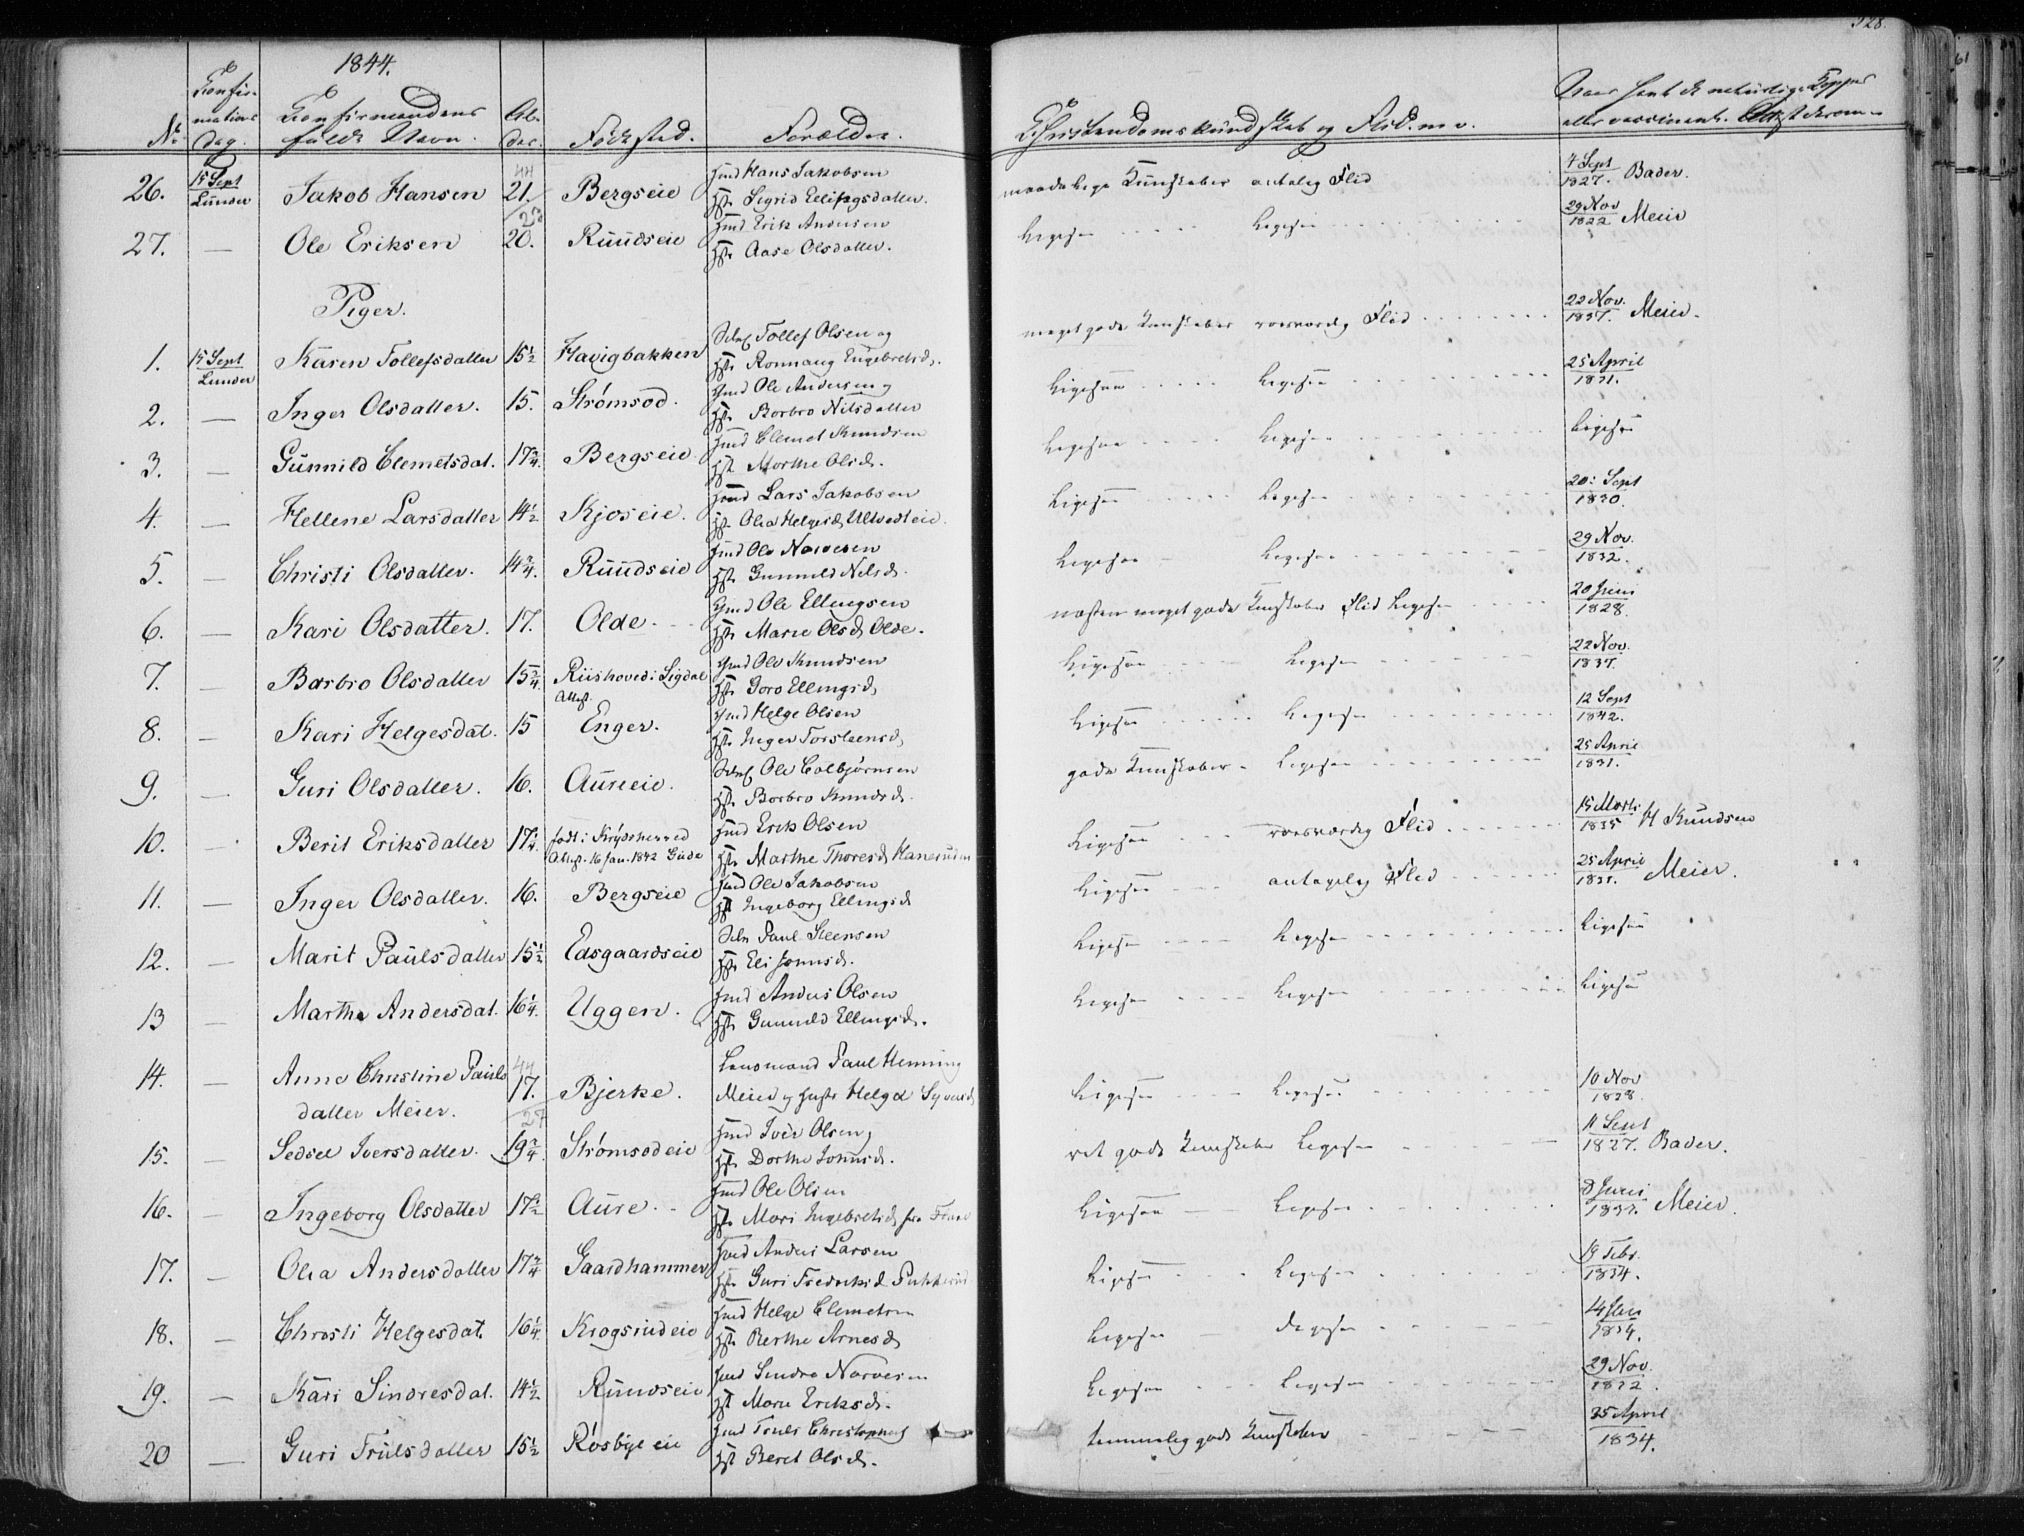 1844.
128.
61
No Confirmations Dag. Confirmandens fulde Navn. Alder. Födested. Forældre. Christendomskundskab og Flid m. v. Naar havt de naturlige Kopper eller vaccineret. Attest derom
26. 15 Sept Lunder Jakob Hansen 21. Bergseie Huusmand Hans Jakobsen maadelige Kundskaber antagelig Flid 4 Sept 1827. Bader.
Hst. Sigrid Ellingsdatter.
27. — Ole Eriksen 20. Ruudseie Hmd Erik Andersen Ligesaa Ligesaa 29 Nov 1822 Meier
Hst. Aase Olsdatter.
Piger.
1. 15 Sept Lunder Karen Tollefsdatter 15½ Havigbakken Tollef Olsen og meget gode Kundskaber roesværdig Flid 22 Nov. 1837. Meier.
Hst. Ronnaug Engebretsd.
2. — Inger Olsdatter. 15. Strømsod. Gmd Ole Andersen og Ligesaa Ligesaa 25 April 1831.
Hst. Borbro Nilsdatter
3. — Gunnild Clemetsdat. 17¾. Bergseie Hmd Clemet Knudsen Ligesaa Ligesaa Ligesaa
Hst. Marthe Olsd.
4. — Hellene Larsdatter 14½ Kjoseie. Hmd Lars Jakobsen Ligesaa Ligesaa 20: Sept 1830.
Hst. Olea Helgesd. Ultvedteie.
5. — Christi Olsdatter. 14¾. Ruudseie Hmd Ole Narvesen Ligesaa Ligesaa 29 Nov. 1832.
Hst. Gunnild Nilsd.
6. — Kari Olsdatter. 17. Olde. Gmd Ole Ellingsen næsten meget gode Kundskaber Flid Ligesaa 20 Juni 1828.
Hst. Marie Olsd. Olde.
7. — Barbro Olsdatter 15¾ Riishoved i Sigdal Attest. Gmd Ole Knudsen Ligesaa Ligesaa 22 Nov. 1837.
Hst. Goro Ellingsd.
8. — Kari Helgesdat. 15 Enger. Gmd Helge Olsen Ligesaa Ligesaa 12 Sept 1842.
Hst. Inger Torstensd.
9. — Guri Olsdatter. 16. Aureeie. Ole Colbjørnsen gode Kundskaber Ligesaa 25 April 1831.
Hst. Borbro Knudsd.
10. — Berit Eriksdatter 17¼ født i Krydsherred Attest. 16 Jan. 1842 Gude Hmd Erik Olsen Ligesaa roesværdig Flid 15 Marts 1835 H Knudsen
Hst. Marthe Thoresd. Hanerudeie
11. — Inger Olsdatter. 16. Bergseie Hmd Ole Jakobsen Ligesaa antagelig Flid 25 April 1831. Meier.
Hst. Ingeborg Ellingsd.
12. — Marit Paulsdatter 15½ Edsgaardseie Paul Steensen Ligesaa Ligesaa Ligesaa
Hst. Eli Jonsd.
13 — Marthe Andersdat. 16¼. Uggen. Hmd Anders Olsen Ligesaa Ligesaa Ligesaa
Hst. Gunnild Ellingsd.
14. — Anne Christine Pauls datter Meier. 17. Bjerke. Lensmand Paul Henning Ligesaa Ligesaa 10 Nov 1828.
Meier og Hustr Helga Syversd
15. — Sedsel Iversdatter. 19¾. Strømsodeie Hmd Iver Olsen og ret gode Kundskaber Ligesaa 11 Sept 1827. Bader.
Hst. Dorthe Johnsd.
16. — Ingeborg Olsdatter 17½ Aure. Hmd Ole Olsen Ligesaa Ligesaa 8 Juni 1831. Meier.
Hst. Mari Ingebretsd fra
17. — Olea Andersdatter 17¾ Gaardhammer Hmd Anders Larsen Ligesaa Ligesaa 19 Febr. 1834.
Hst. Guri Frederiksd.
18. — Christi Helgesdat. 16¼. Krogsrudeie Hmd Helge Clemetsen Ligesaa Ligesaa 14 Jan 1834.
Hst. Berthe Arnesd
19. — Kari Sindresdat. 14½ Ruudseie Hmd Sindre Narvesen Ligesaa Ligesaa 29 Nov. 1832.
Hst Marie Eriksd.
20 — Guri Trulsdatter 15½ Rosbyeeie Hmd Truls Christophers temmelig gode Kundskaber 25 April 1834.
Hst Beret Olsd.